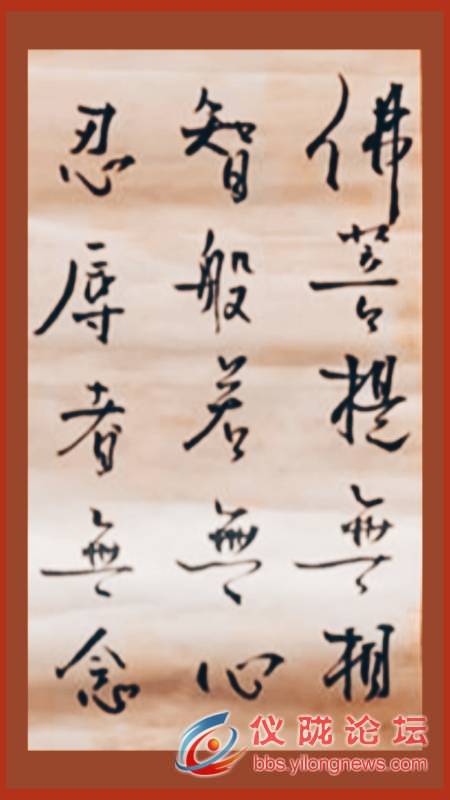 佛菩提無相
智般若無心
忍辱者無念
仪陇论坛
bbs.yilongnews.com